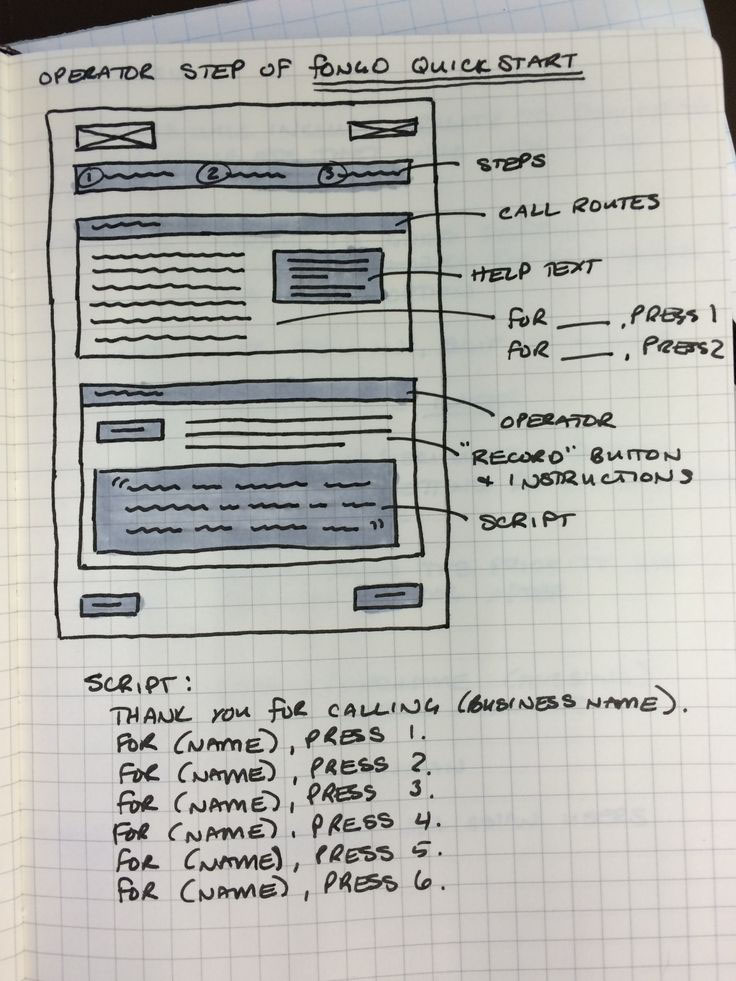 OPERATOR STEP OF FONGO QUICKSTART
1 2 3
STEPS
CALL ROUTES
HELP TEXT
FOR ___ , PRESS 1
FOR ___ , PRESS 2
OPERATOR
"RECORD" BUTTON
+ INSTRUCTIONS
"
"
SCRIPT
SCRIPT:
THANK YOU FOR CALLING (BUSINESS NAME).
FOR (NAME), PRESS 1.
FOR (NAME), PRESS 2.
FOR (NAME), PRESS 3.
FOR (NAME), PRESS 4.
FOR (NAME), PRESS 5.
FOR (NAME), PRESS 6.